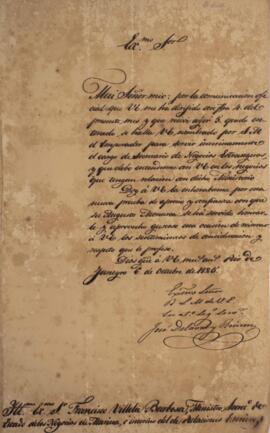 Ex.mo Sor.
Muy Señor mio: por la comunicacion ofi-
cial que V.E. me ha dirijido con fha 4. del
presente mes y que recivi ayer 5. quedo en-
terado se halla V.E. nombrado por S.M.
el Emperador para servir interinamente
el cargo de Secretario de Negocios Extrangeros,
y que debo entenderme con V.E. en los negocios
que tengan relacion con dicho Ministerio
Doy á V.E. la enhorabuena por una
nueva prueba de aprecio y confianza con que
su Augusto Monarca se ha servido honrar-
le, y aprovecho gustoso esa ocasion de renovar
á V.E. los sentimientos de consideracion y
respeto que le profeso.
Dios gue á V.E. m.s an.s Rio de
Janeyro 6 de Octubre de 1826.
Exmo Señor
B. L. M. de V.E.
Su at.o Seg.o Serv.or
José Delavat y Rincon
Illmo. Exmo. Sr. Francisco Villela Barbosa, Ministro, Secret.o de
Estado de los Negocios de Marina, é interino del de Relaciones